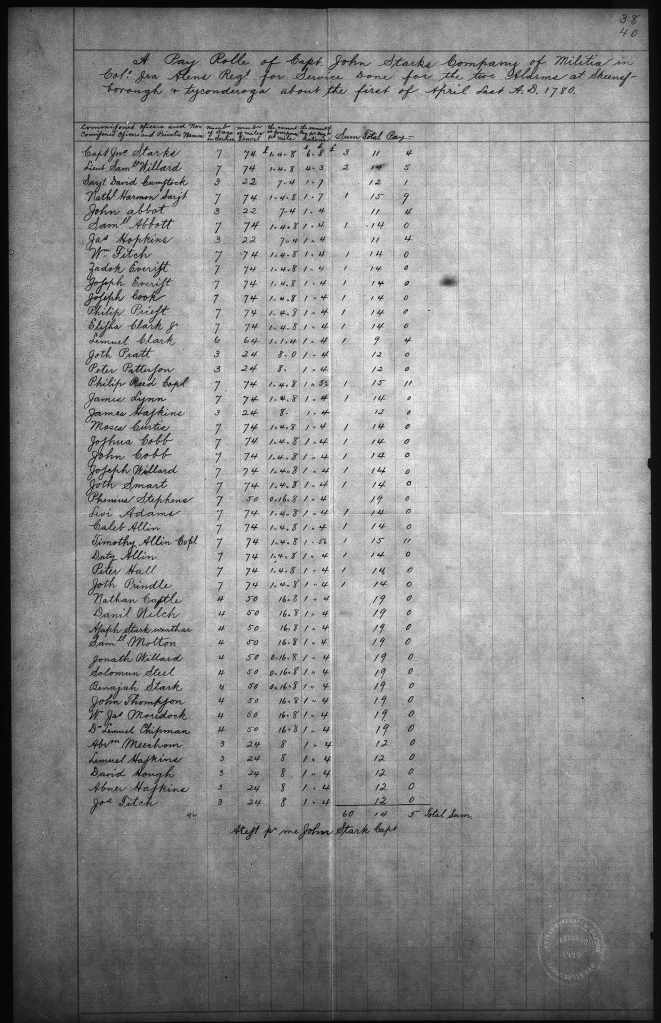 38
40
A Pay Rolle of Capt John Starks Company of Militia in
Col.º Ira Alens Reg.t for Service Done for the two Alarms at Skeens-
borough & tyconderoga about the first of April Last A.D. 1780.
Commissioned officers and Non Commissioned Officers and Privates Names number of days number of miles the amount the amount Sum Total Pay
Capt Jno Starks 7 74 £1-4-8 6-8 £3 11 4
Lieut Sam.ll Willard 7 74 1-4-8 4-3 2 14 5
Sarjt David Cumstock 3 22 7-4 1-7 12 1
Nathl Harmon Sarjt 7 74 1-4-8 1-7 1 15 9
John abbot 3 22 7-4 1-4 11 4
Sam.ll Abbott 7 74 1-4-8 1-4 1 14 0
Jas Hopkins 3 22 7-4 1-4 11 4
Wm Fitch 7 74 1-4-8 1-4 1 14 0
Zadok Everist 7 74 1-4-8 1-4 1 14 0
Joseph Everist 7 74 1-4-8 1-4 1 14 0
Joseph Cook 7 74 1-4-8 1-4 1 14 0
Philip Priest 7 74 1-4-8 1-4 1 14 0
Elisha Clark Jr 7 74 1-4-8 1-4 1 14 0
Lemuel Clark 6 64 1-1-4 1-4 1 9 4
Joth Pratt 3 24 8-0 1-4 12 0
Peter Patterson 3 24 8- 1-4 12 0
Philip Reed Copl 7 74 1-4-8 1-5½ 1 15 11
James Lynn 7 74 1-4-8 1-4 1 14 0
James Haskins 3 24 8- 1-4 12 0
Moses Curtis 7 74 1-4-8 1-4 1 14 0
Joshua Cobb 7 74 1-4-8 1-4 1 14 0
John Cobb 7 74 1-4-8 1-4 1 14 0
Joseph Willard 7 74 1-4-8 1-4 1 14 0
Joth Smart 7 74 1-4-8 1-4 1 14 0
Phenius Stephens 7 50 0-16-8 1-4 19 0
Levi Adams 7 74 1-4-8 1-4 1 14 0
Caleb Allin 7 74 1-4-8 1-4 1 14 0
Timothy Allin Copl 7 74 1-4-8 1-5½ 1 15 11
Duty Allin 7 74 1-4-8 1-4 1 14 0
Peter Hall 7 74 1-4-8 1-4 1 14 0
Joth Prindle 7 74 1-4-8 1-4 1 14 0
Nathan Castle 4 50 16-8 1-4 19 0
Danil Welch 4 50 16-8 1-4 19 0
Asaph Stark weather 4 50 16-8 1-4 19 0
Sam.ll Molton 4 50 16-8 1-4 19 0
Jonath Willard 4 50 0-16-8 1-4 19 0
Solomun Steel 4 50 0-16-8 1-4 19 0
Benajah Stark 4 50 0-16-8 1-4 19 0
John Thompson 4 50 16-8 1-4 19 0
Wm Jas Moredock 4 50 16-8 1-4 19 0
Dr Lemuel Chipman 4 50 16-8 1-4 19 0
Abrm Meechom 3 24 8 1-4 12 0
Lemuel Haskins 3 24 8 1-4 12 0
David Hough 3 24 8 1-4 12 0
Abner Haskins 3 24 8 1-4 12 0
Jos Fitch 3 24 8 1-4 12 0
60 14 5 Total Sum
Atest pr me John Stark Capt